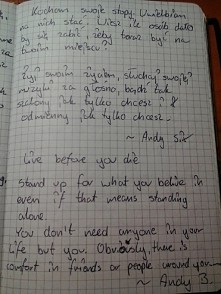 Kocham swoje stopy. Uwielbiam
na nich stać. Wiesz ile osób dało
by się zabić, żeby teraz być na
twoim miejscu?
Żyj swoim życiem, słuchaj swojej
muzyki za głośno, bądź tak
szalony jak tylko chcesz i
odmienny jak tylko chcesz.
~ Andy Six
Live before you die
Stand up for what you belive in
even if that means standing
alone.
You don't need anyone in your
life but you. Obviously, there is
comfort in friends or people around you
~ Andy B.